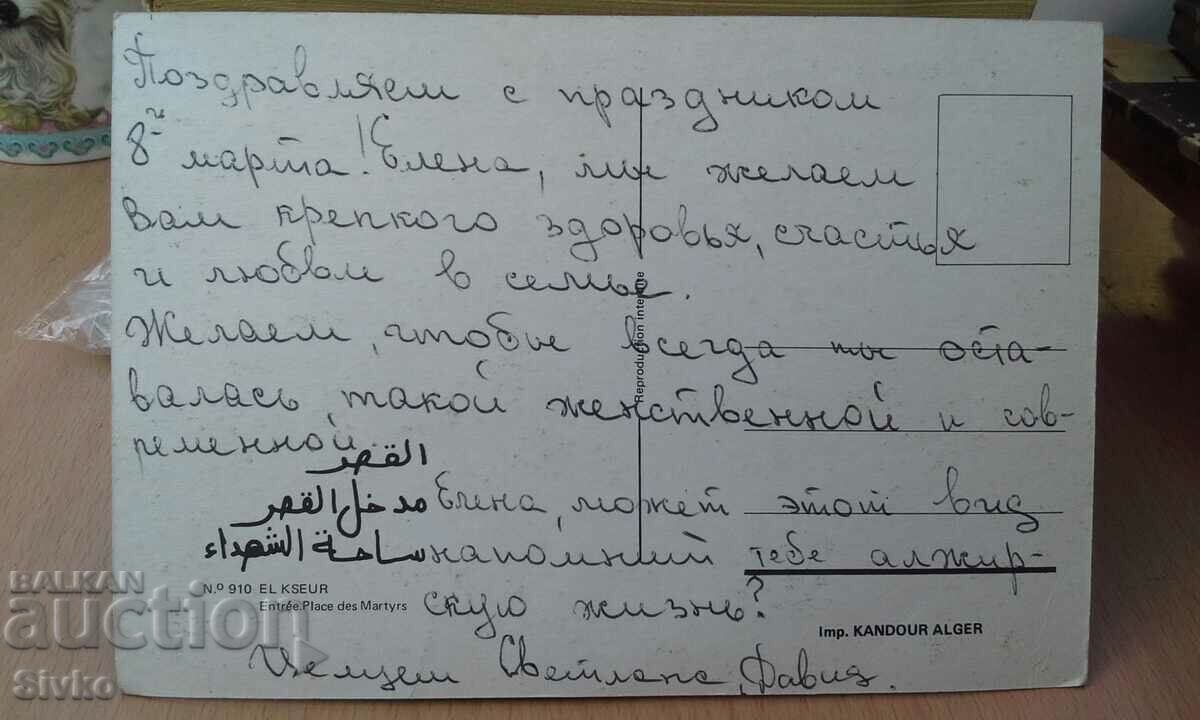 Поздравляем с праздником
8-и марта! Елена, мы желаем
вам крепкого здоровья, счастья
и любви в семье.
Желаем, чтобы всегда ты оста-
валась, такой женственной и сов-
ременной
القصر
مدخل القصر
ساحة الشهداء
Елена, может этот вид
напомний тебе алжир-
скую жизнь?
N.º 910 EL KSEUR
Entrée.Place des Martyrs
Reproduction interdite
Imp. KANDOUR ALGER
Целуем Светлана, Давид.
BALKAN
auction
Sivko